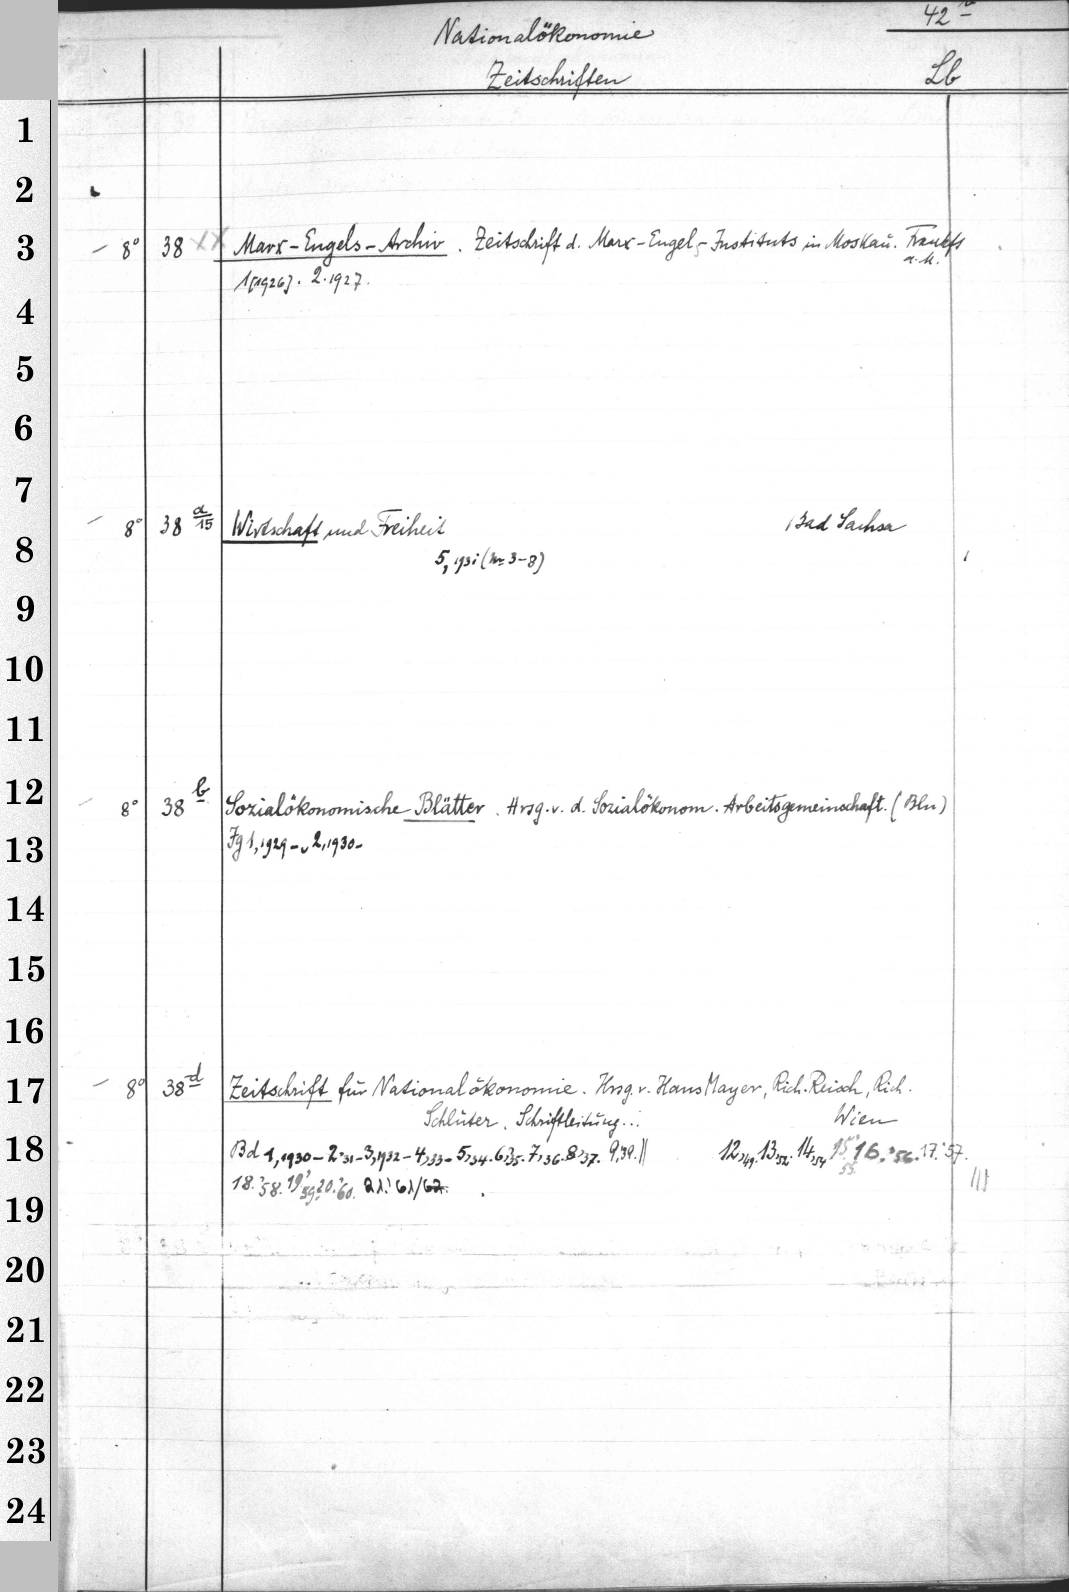 42
Nationalökonomie
Zeitschriften Lb
1
2
3 8° 38 Marx-Engels-Archiv. Zeitschrift d. Marx-Engels-Instituts in Moskau. Frankf
a. M.
1[1926]. 2.1927.
4
5
6
7
8° 38 a/15 Wirtschaft und Freiheit Bad Sachsa
8 5, 1931 (Nr 3-8)
9
10
11
12 8° 38 b Sozialökonomische Blätter. Hrsg. v. d. Sozialökonom. Arbeitsgemeinschaft. (Bln)
13 Jg 1, 1929-, 2, 1930-
14
15
16
17 8° 38 d Zeitschrift für Nationalökonomie. Hrsg. v. Hans Mayer, Rich. Reisch, Rich.
Schlüter. Schriftleitung... Wien
18 Bd 1, 1930- 2,'31- 3, 1932- 4,'33- 5,'34. 6,'35. 7,'36. 8,'37. 9,'39. || 12,'49. 13,'52. 14,'54 15,'55. 16.'56. 17.'57.
18.'58. 19,'59. 20.'60. 21.'61/62.
19
20
21
22
23
24